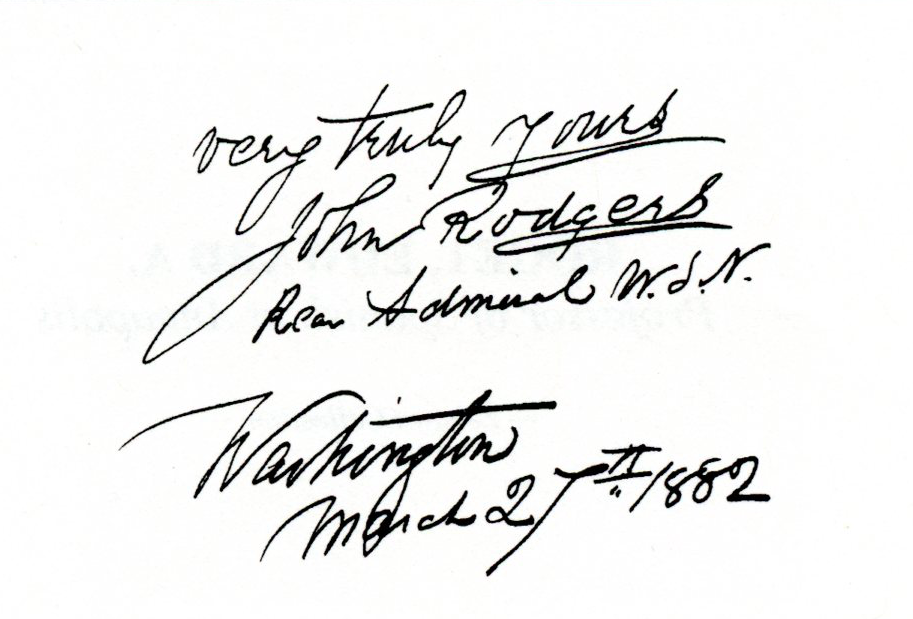 very truly yours
John Rodgers
Rear Admiral U.S.N.
Washington
March 27th 1882